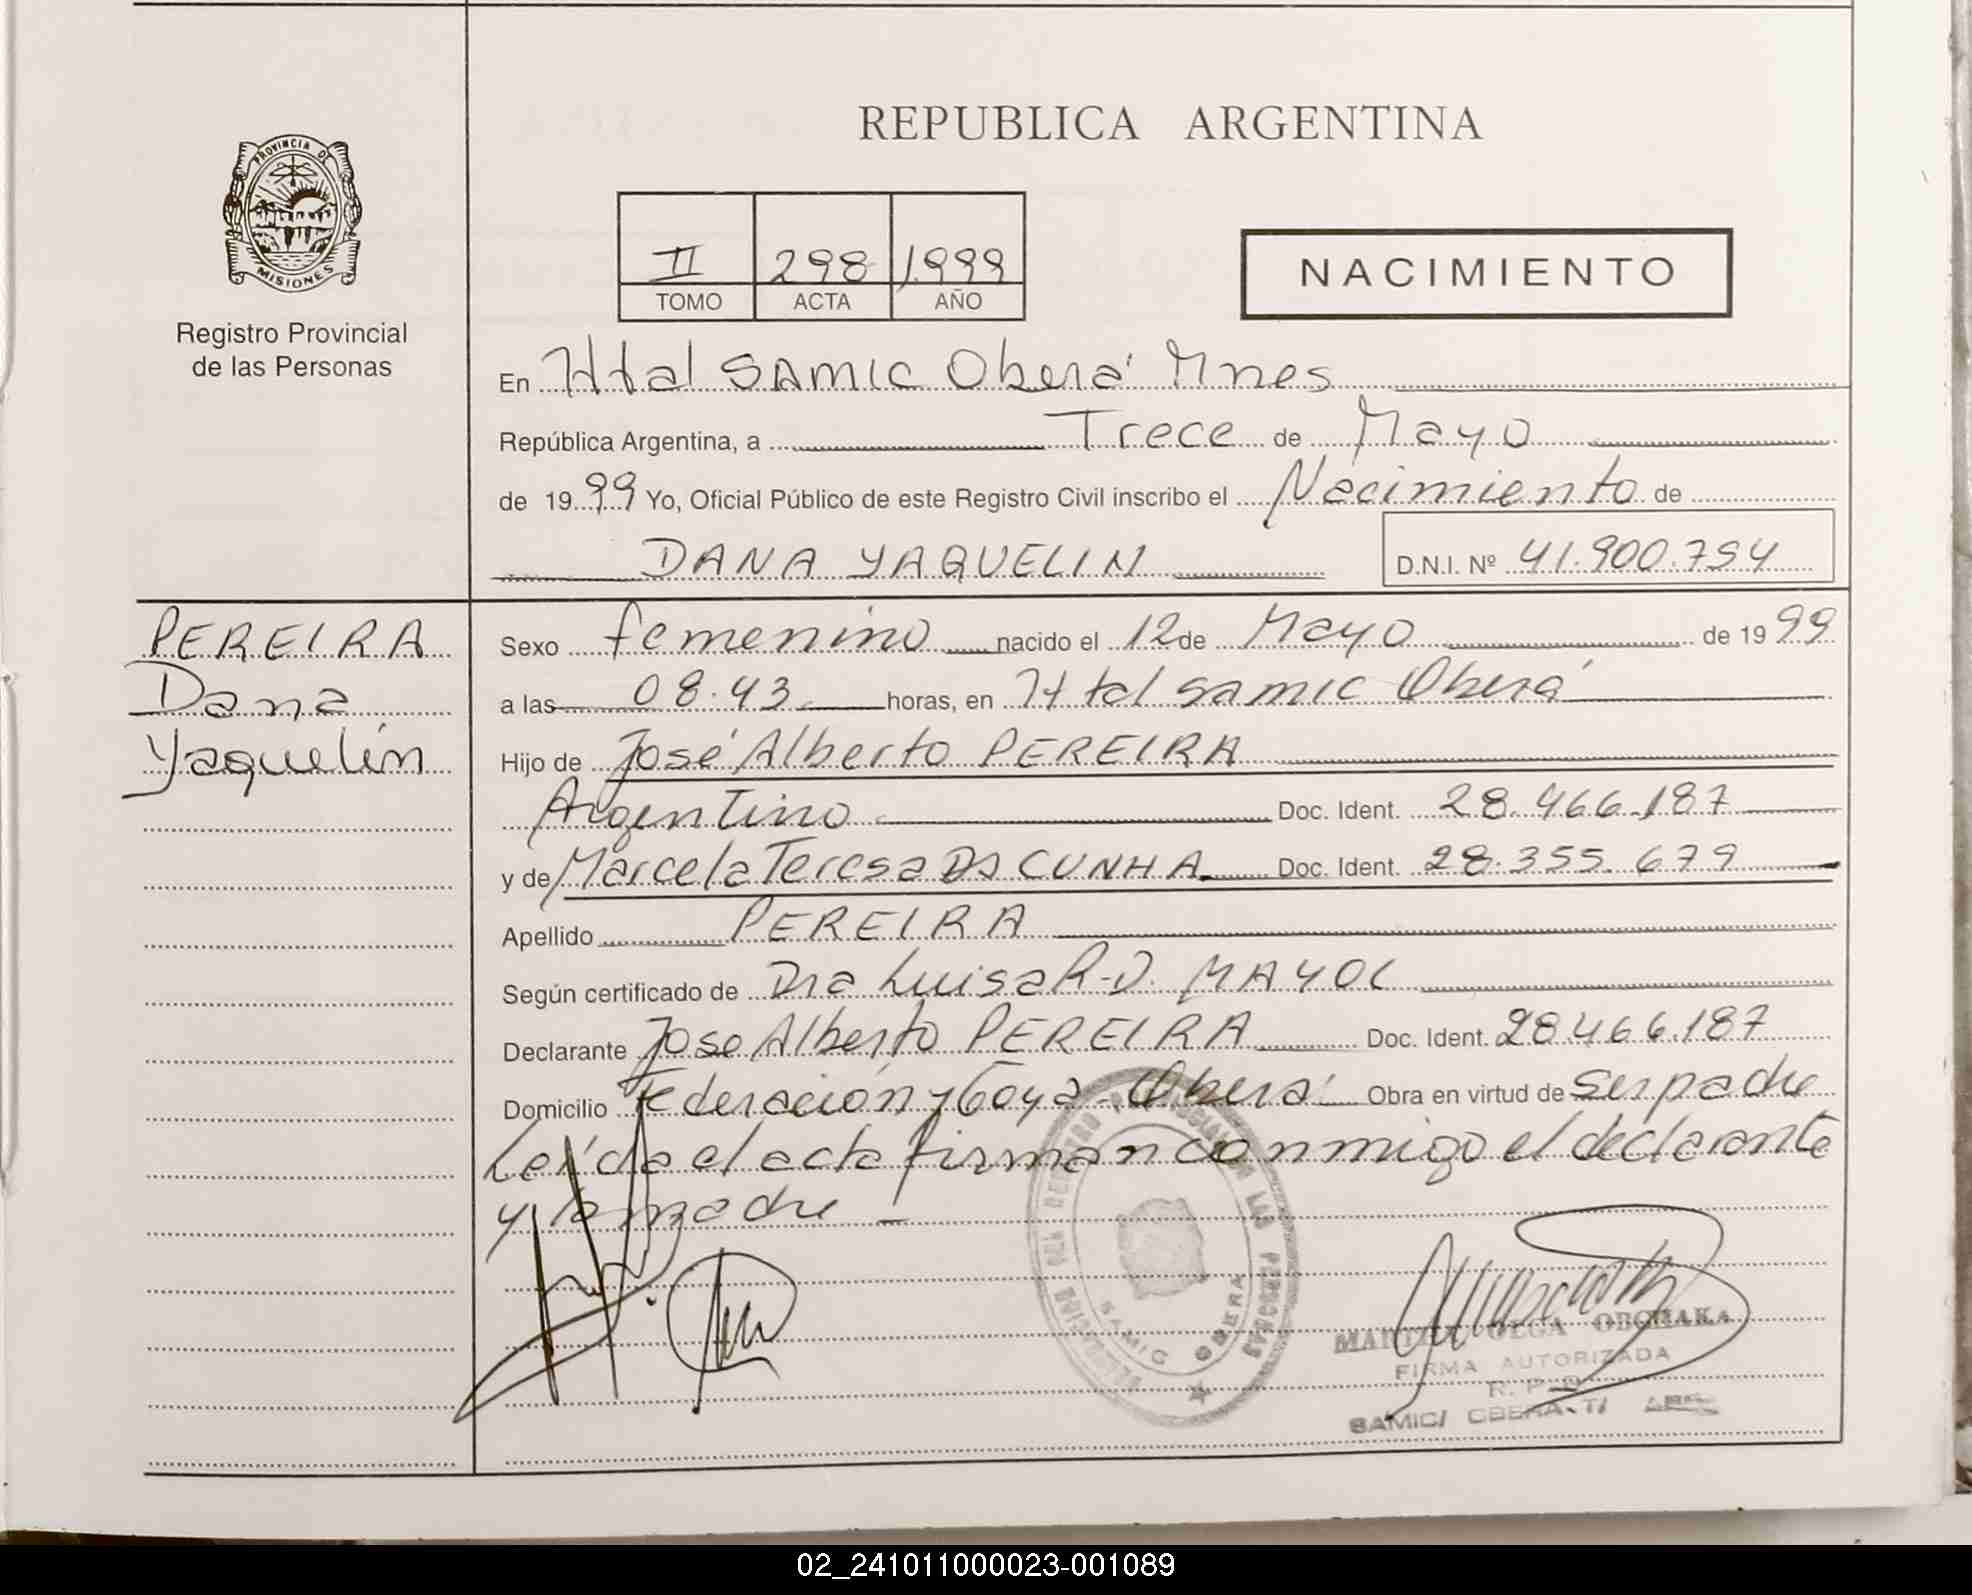 REPUBLICA ARGENTINA
PROVINCIA DE
MISIONES
Registro Provincial
de las Personas
II 298 1.999
TOMO ACTA AÑO
NACIMIENTO
En Htal SAMIC Oberá Mnes
República Argentina, a Trece de Mayo
de 1999 Yo, Oficial Público de este Registro Civil inscribo el Nacimiento de
DANA YAQUELIN D.N.I. Nº 41.900.794
PEREIRA
Dana
Yaquelin
Sexo femenino nacido el 12 de Mayo de 1999
a las 08.43 horas, en Htal samic Oberá
Hijo de José Alberto PEREIRA
Argentino Doc. Ident. 28.466.187
y de Marcela Teresa Da CUNHA Doc. Ident. 28.355.679
Apellido PEREIRA
Según certificado de Dra Luisa R-D. MAYOL
Declarante Jose Alberto PEREIRA Doc. Ident. 28.466.187
Domicilio Federación y Goya Oberá Obra en virtud de ser padre
Leída el acta firman conmigo el declarante
y la madre -
SAMIC OBERA
OLGA OBCHAKA
FIRMA AUTORIZADA
R. P. P.
SAMIC/ OBERA
02_241011000023-001089